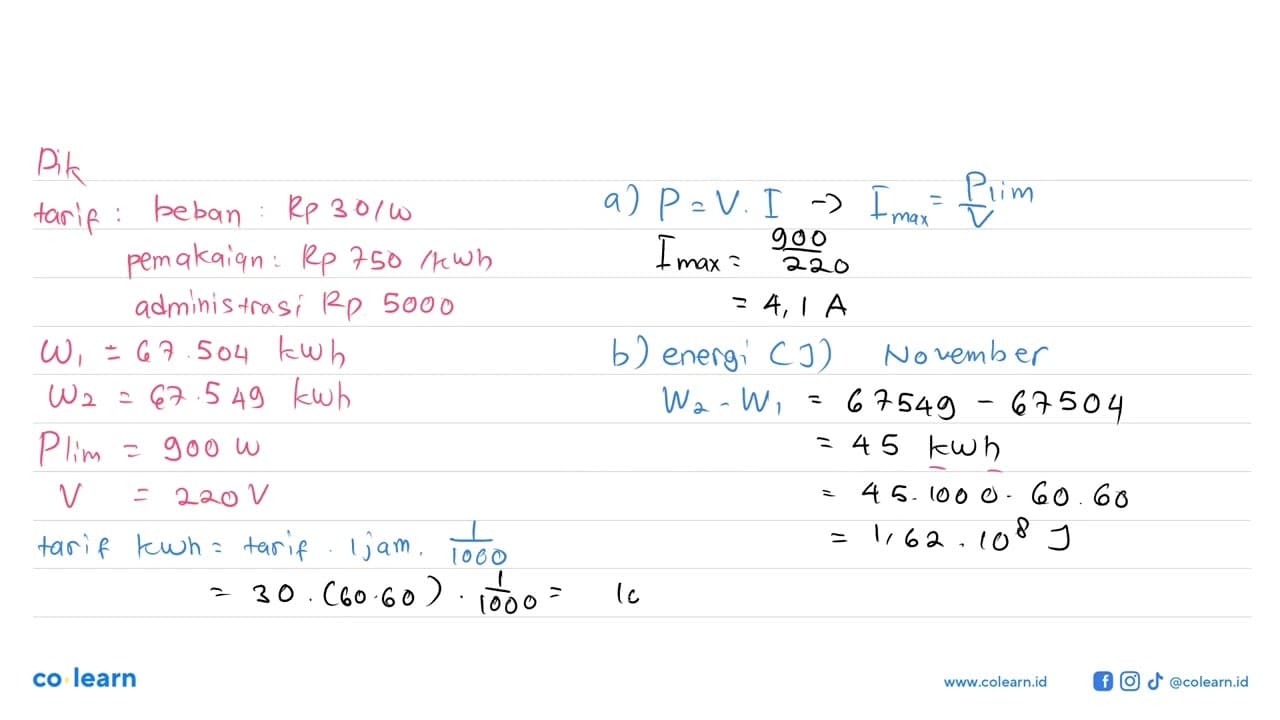 Dik
tarif : beban : Rp 30/W
pemakaian : Rp 750 /kwh
administrasi Rp 5000
W₁ = 67.504 kwh
W₂ = 67.549 kwh
Plim = 900 W
V = 220 V
tarif kwh = tarif . 1 jam . 1/1000
= 30 . (60.60) . 1/1000 = 10
a) P = V . I → Imax = Plim/V
Imax = 900/220
= 4,1 A
b) energi (J) November
W₂ - W₁ = 67549 - 67504
= 45 kwh
= 45.1000.60.60
= 1,62 . 10⁸ J
co learn
www.colearn.id
@colearn.id